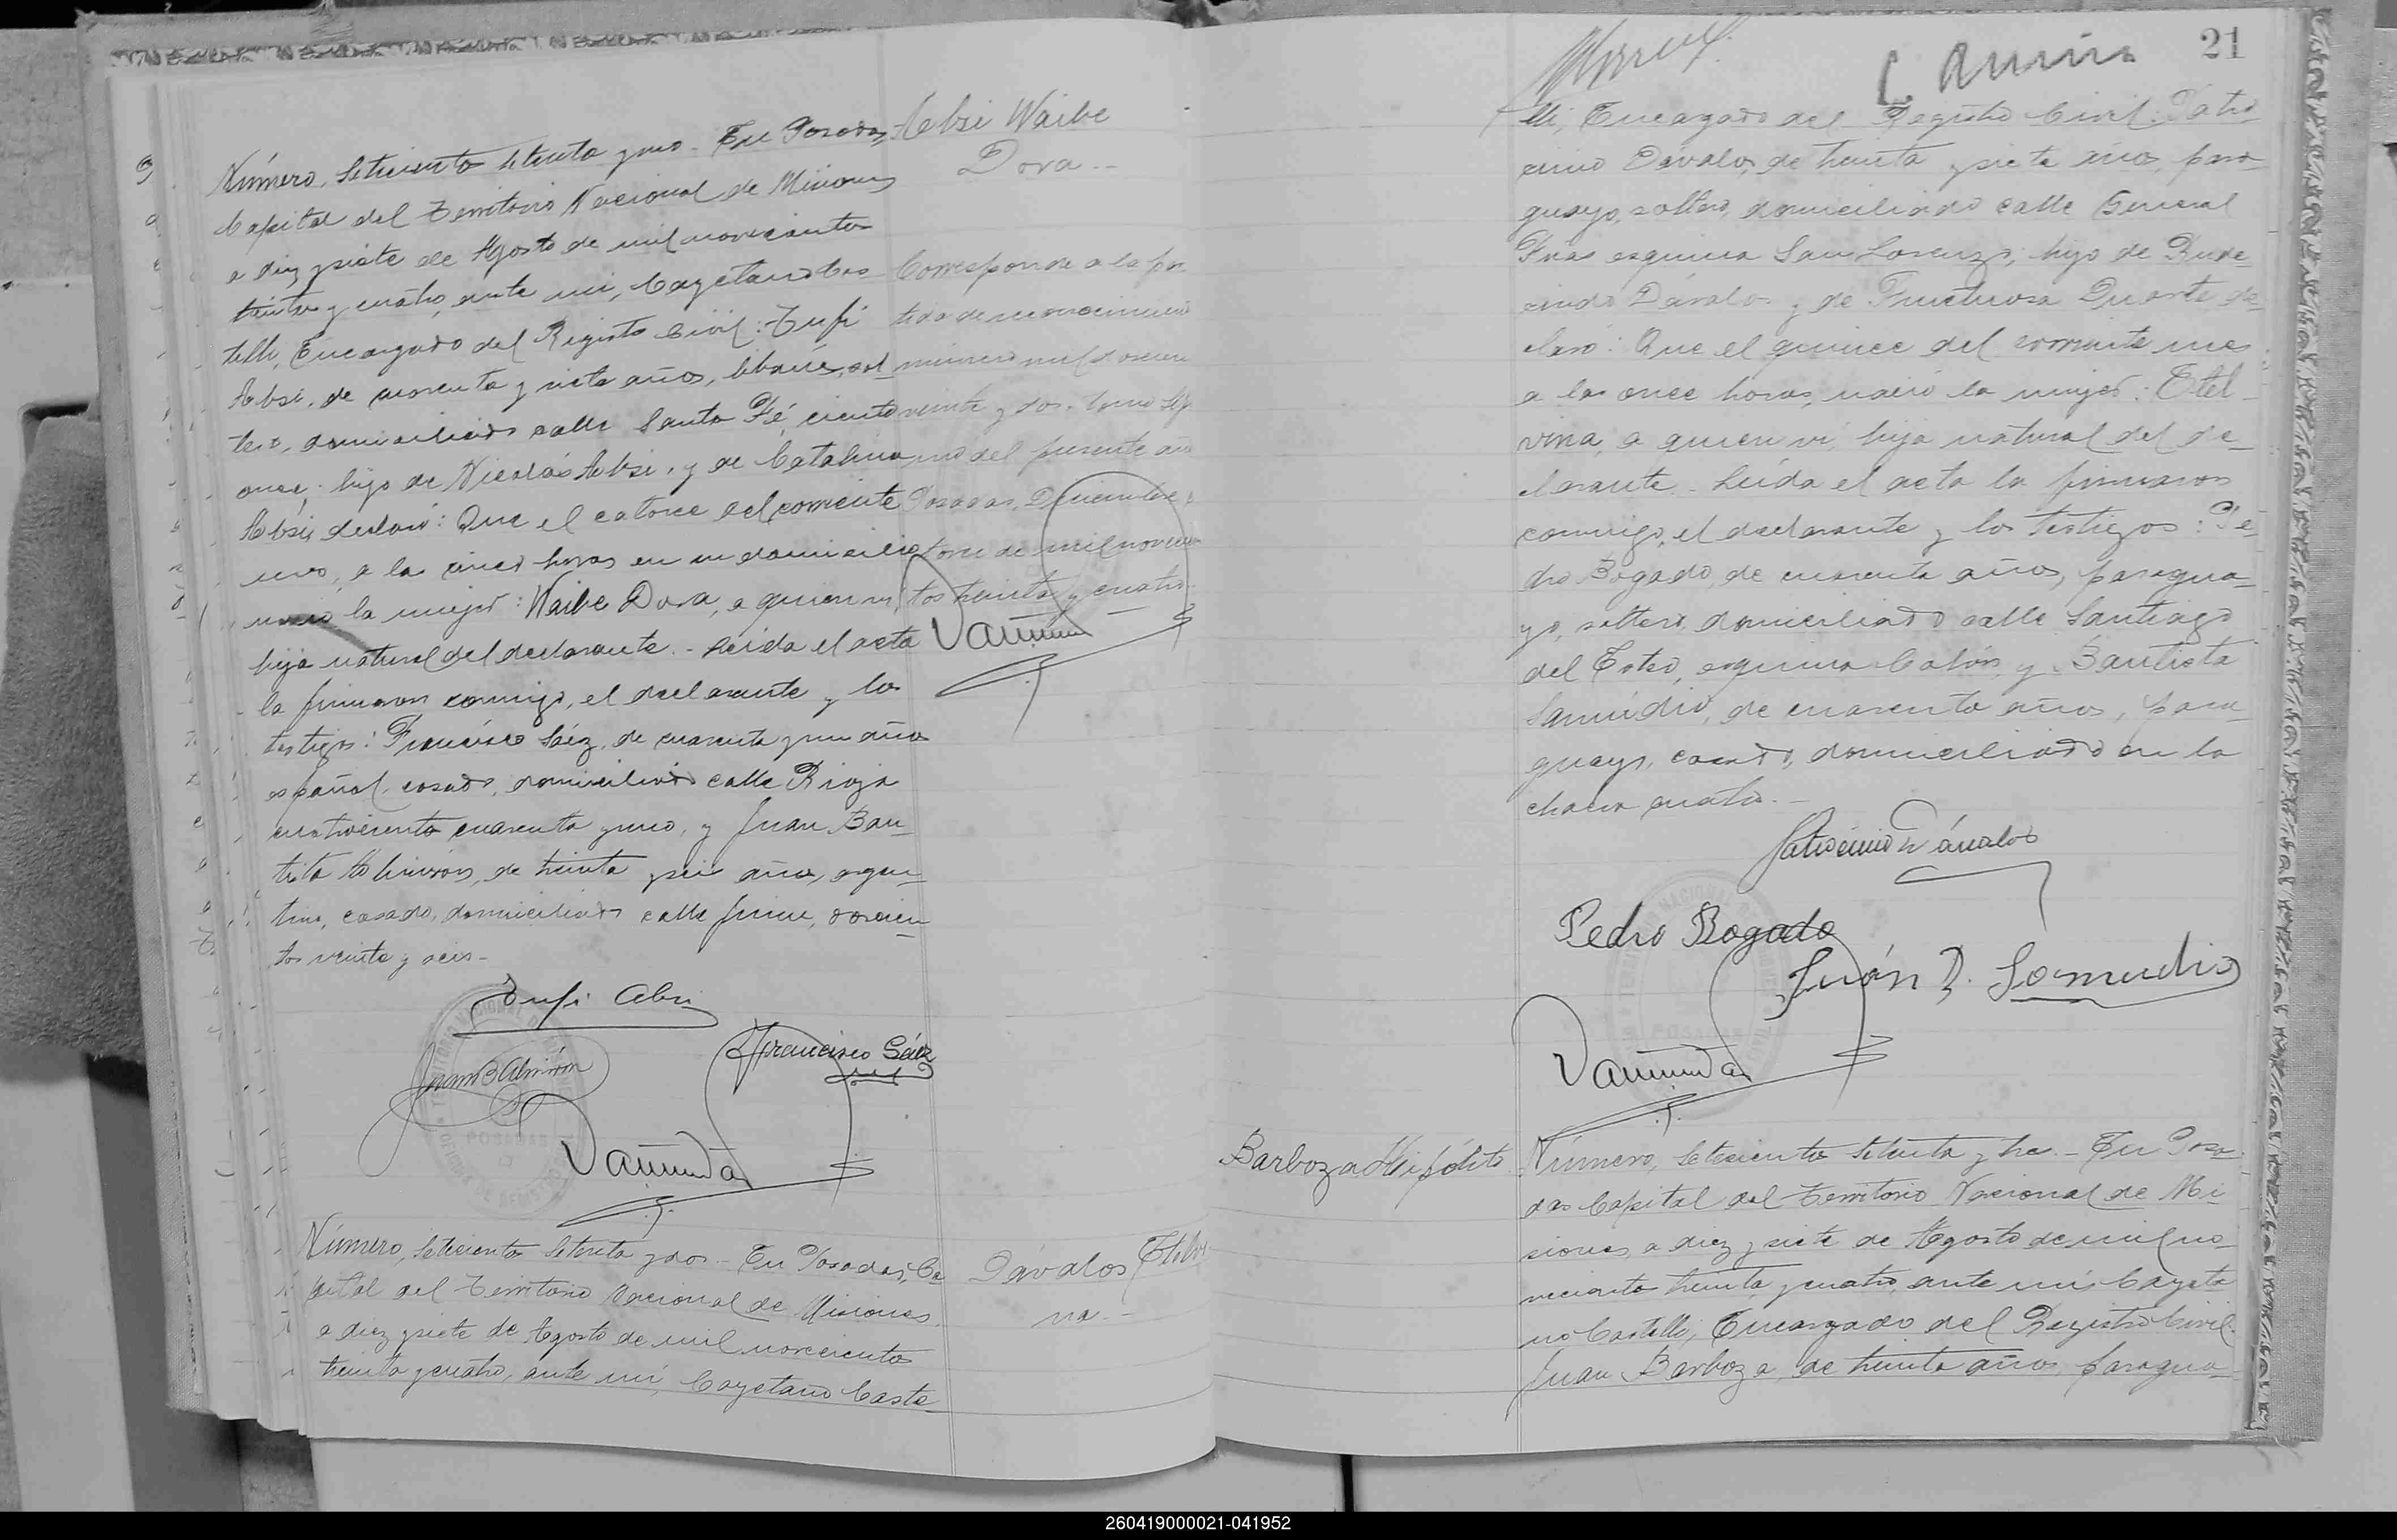 Número, Setecientos setenta y uno.- En Posadas,
Capital del Territorio Nacional de Misiones
a diez y siete de Agosto de mil novecientos
treinta y cuatro, ante mi, Cayetano Cas-
telli, Encargado del Registro Civil: Tufi
Absi, de cuarenta y siete años, libanés, sol
tero, domiciliado calle Santa Fé, ciento
once, hijo de Nicolás Absi, y de Catalina
Absi, declaró: Que el catorce del corriente
mes, a las cinco horas en su domicilio
nació la mujer: Naibe Dora, a quien vi,
hija natural del declarante.- Leída el acta
la firmaron conmigo, el declarante y los
testigos: Francisco Sáez, de cuarenta y un años
español, casado, domiciliado calle Rioja
cuatrocientos cuarenta y uno, y Juan Bau-
tista Almirón, de treinta y seis años, argen-
tino, casado, domiciliado calle Junin, doscien-
tos veinte y seis-
Absi Naibe
Dora.--
Corresponde a la par
tida de reconocimiento
número mil doscien
veinte y dos, tomo
del presente año
Posadas, Diciembre
de mil novecien
tos treinta y cuatro.
Tufi Absi
Juan B Almirón
Francisco Sáez
TERRITORIO NACIONAL DE
POSADAS
Número, Setecientos Setenta y dos.- En Posadas, Ca
pital del Territorio Nacional de Misiones
a diez y siete de Agosto de mil novecientos
treinta y cuatro, ante mi, Cayetano Caste-
Dávalos Etelvi
na.--
21
lli, Encargado del Registro Civil: Patro
cinio Dávalos, de treinta y siete años, para-
guayo, soltero, domiciliado calle General
Frias esquina San Lorenzo; hijo de Rude-
cindo Dávalos y de Fructuosa Duarte de-
claró: Que el quince del corriente mes
a las once horas, nació la mujer: Etel-
vina, a quien vi, hija natural del de-
clarante.- Leída el acta la firmaron
conmigo, el declarante y los testigos: Pe-
dro Bogado, de cuarenta años, paragua-
yo, soltero, domiciliado calle Santiago
del Estero, esquina Colón, y Bautista
Samudio, de cuarenta años, para-
guayo, casado, domiciliado en la
chacra cuatro.-
Patrocinio Dávalos
Pedro Bogado
Juán B. Samudio
Barboza Hipólito
Número, Setecientos Setenta y tres.- En Posa-
das Capital del Territorio Nacional de Mi
siones, a diez y siete de Agosto de mil no-
vecientos treinta y cuatro, ante mí Cayeta
no Castelli, Encargado del Registro Civil:
Juan Barboza, de treinta años, paragua-
260419000021-041952